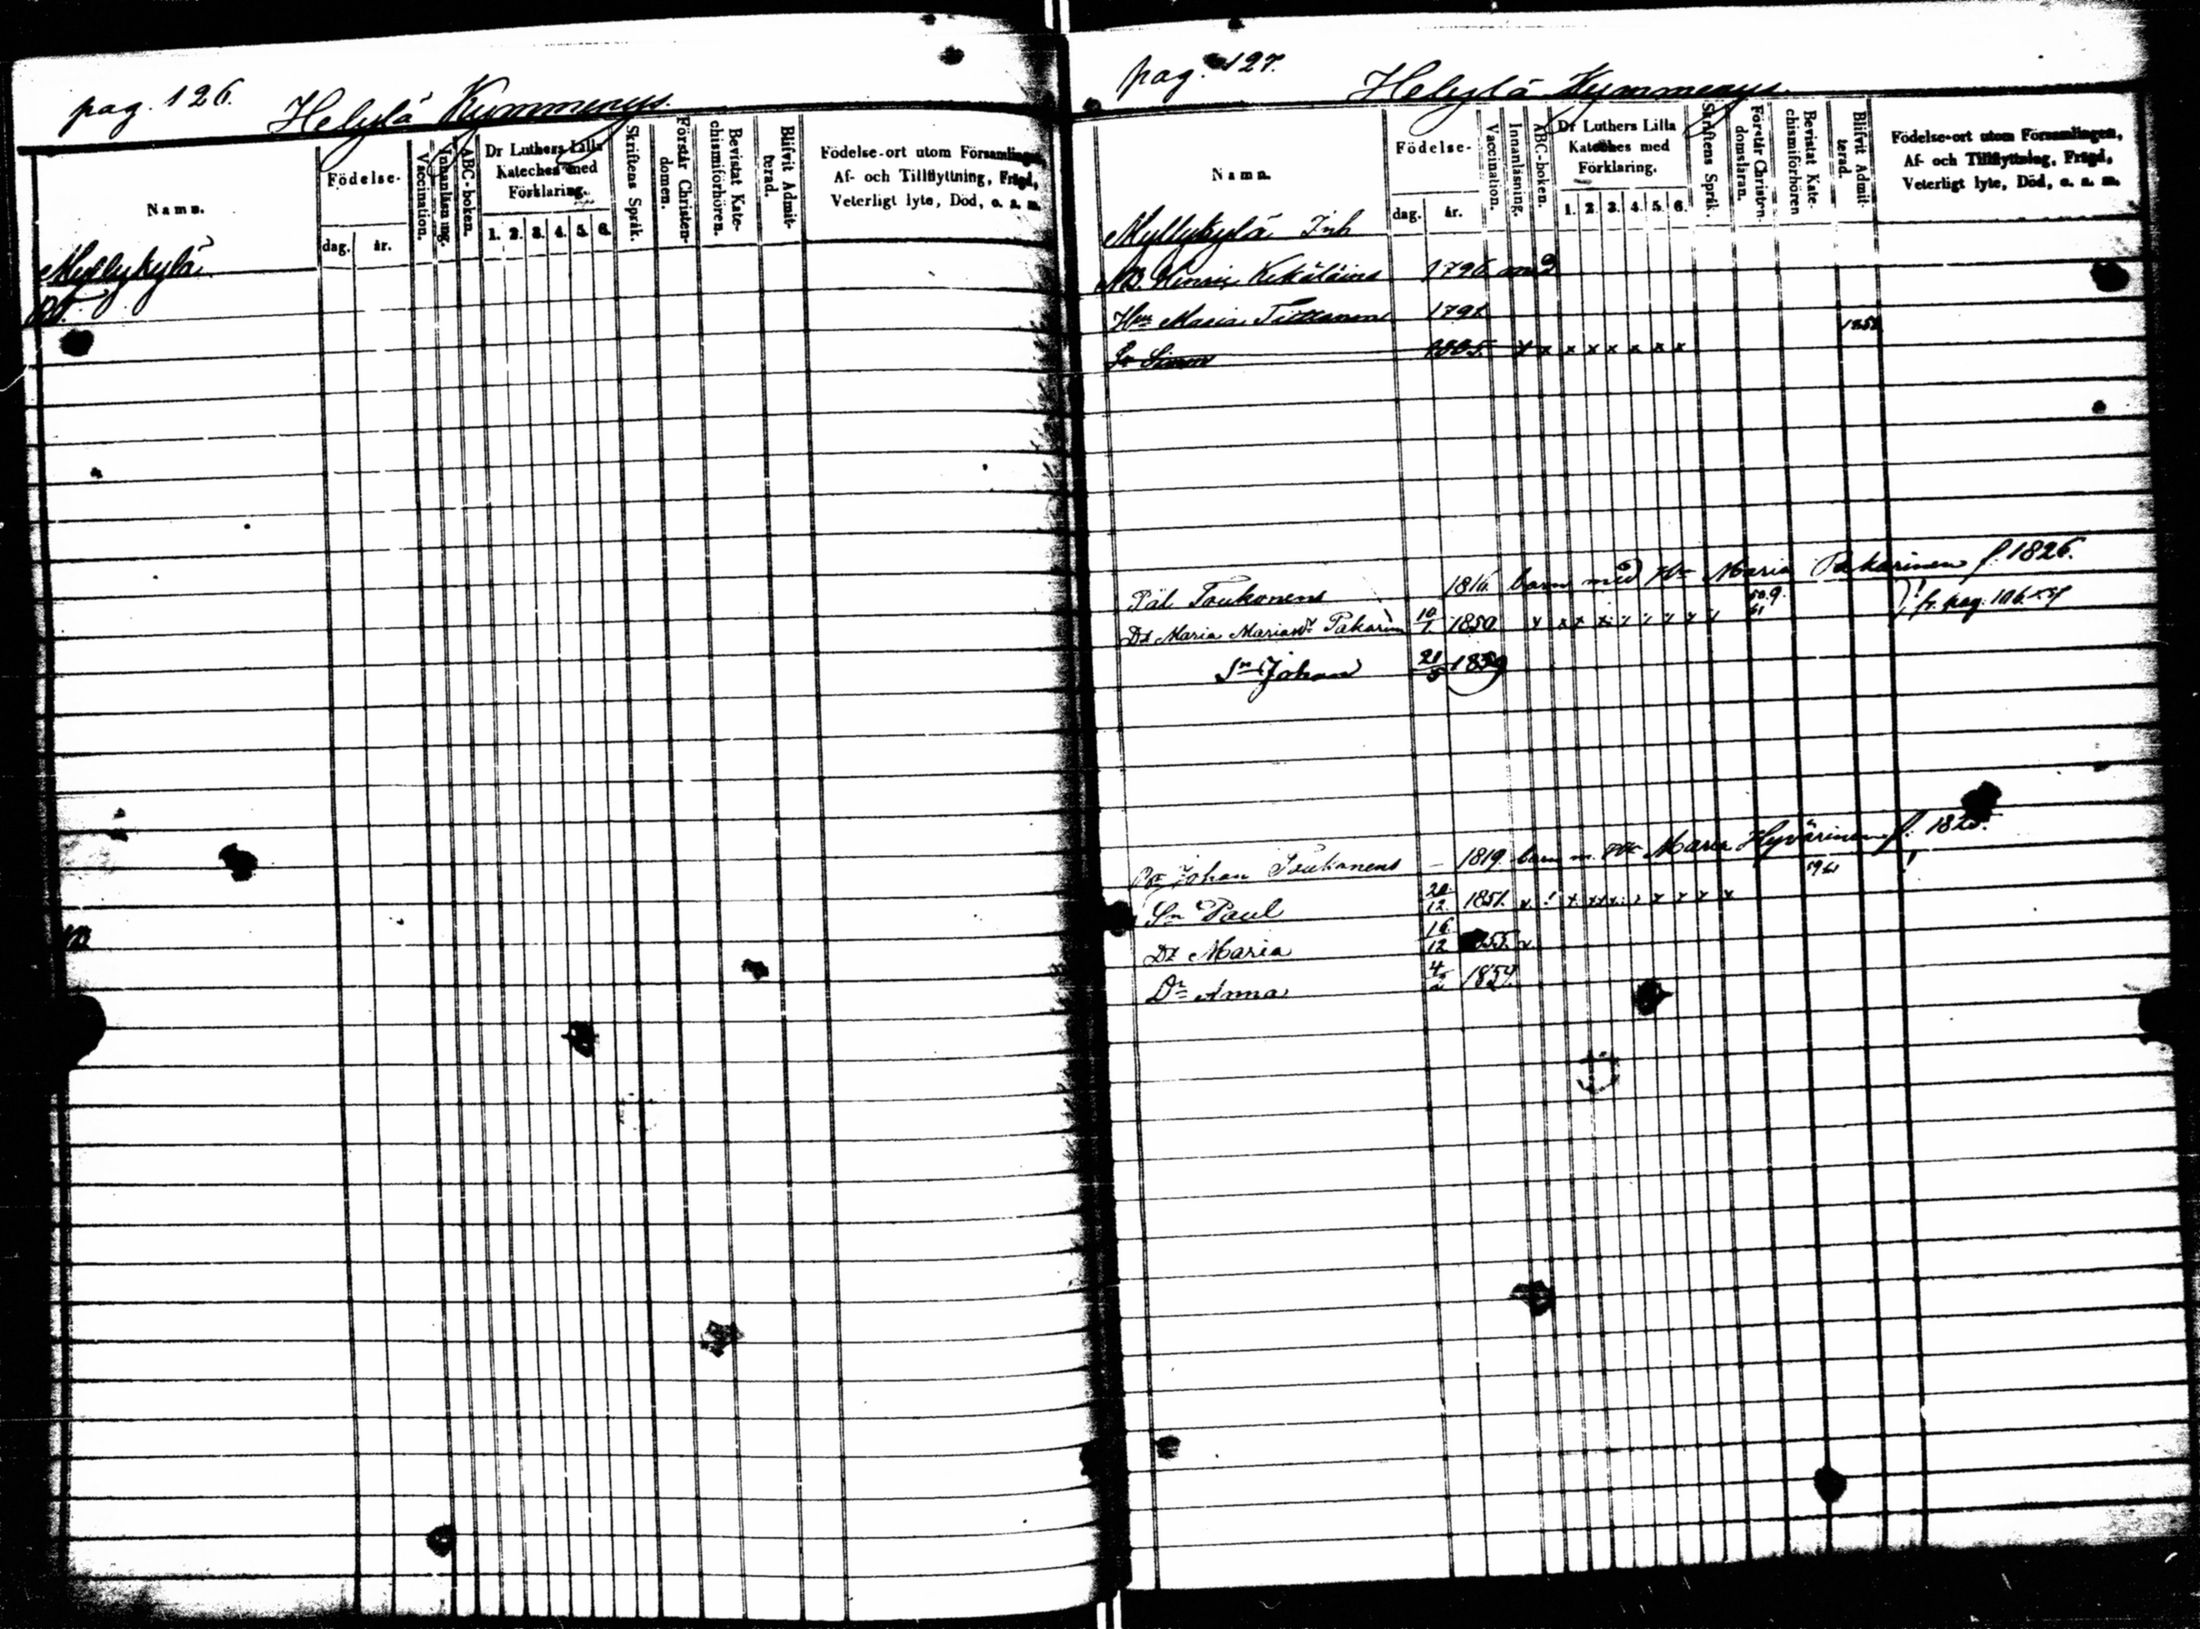 pag. 126.
Helylä Kymmenys.
Namn.
Födelse-
dag. år.
Vaccination.
Innanläsning.
ABC-boken.
Dr Luthers Lilla
Kateches med
Förklaring.
1. 2. 3. 4. 5. 6.
Skriftens Språk.
Förstår Christen-
domen.
Bevistat Kate-
chismiförhören.
Blifvit Admit-
terad.
Födelse-ort utom Församlingen,
Af- och Tillflyttning, Frägd,
Veterligt lyte, Död, o. a. m.
Myllykylä
pag. 127.
Helylä Kymmenys.
Namn.
Födelse-
dag. år.
Vaccination.
Innanläsning.
ABC-boken.
Dr Luthers Lilla
Kateches med
Förklaring.
1. 2. 3. 4. 5. 6.
Skriftens Språk.
Förstår Christen-
domsläran.
Bevistat Kate-
chismiförhören
Blifvit Admit-
terad.
Födelse-ort utom Församlingen,
Af- och Tillflyttning, Frägd,
Veterligt lyte, Död, o. a. m.
Myllykylä Inh
Henric 1796
Maria 1798
Sn Simon x x x x x x x x
Pål Toukonens 1816 barn med Hu Maria Pakarinen f. 1826.
Dr Maria 10/1 1850 fr. pag. 106.
Sn Johan 21/5 1859
Johan Toukonens – 1819. barn m. Maria Hyvärinen f.
Sn Paul 20/12 1851.
Dr Maria 16/12 1855 x
Dr Anna 1859.